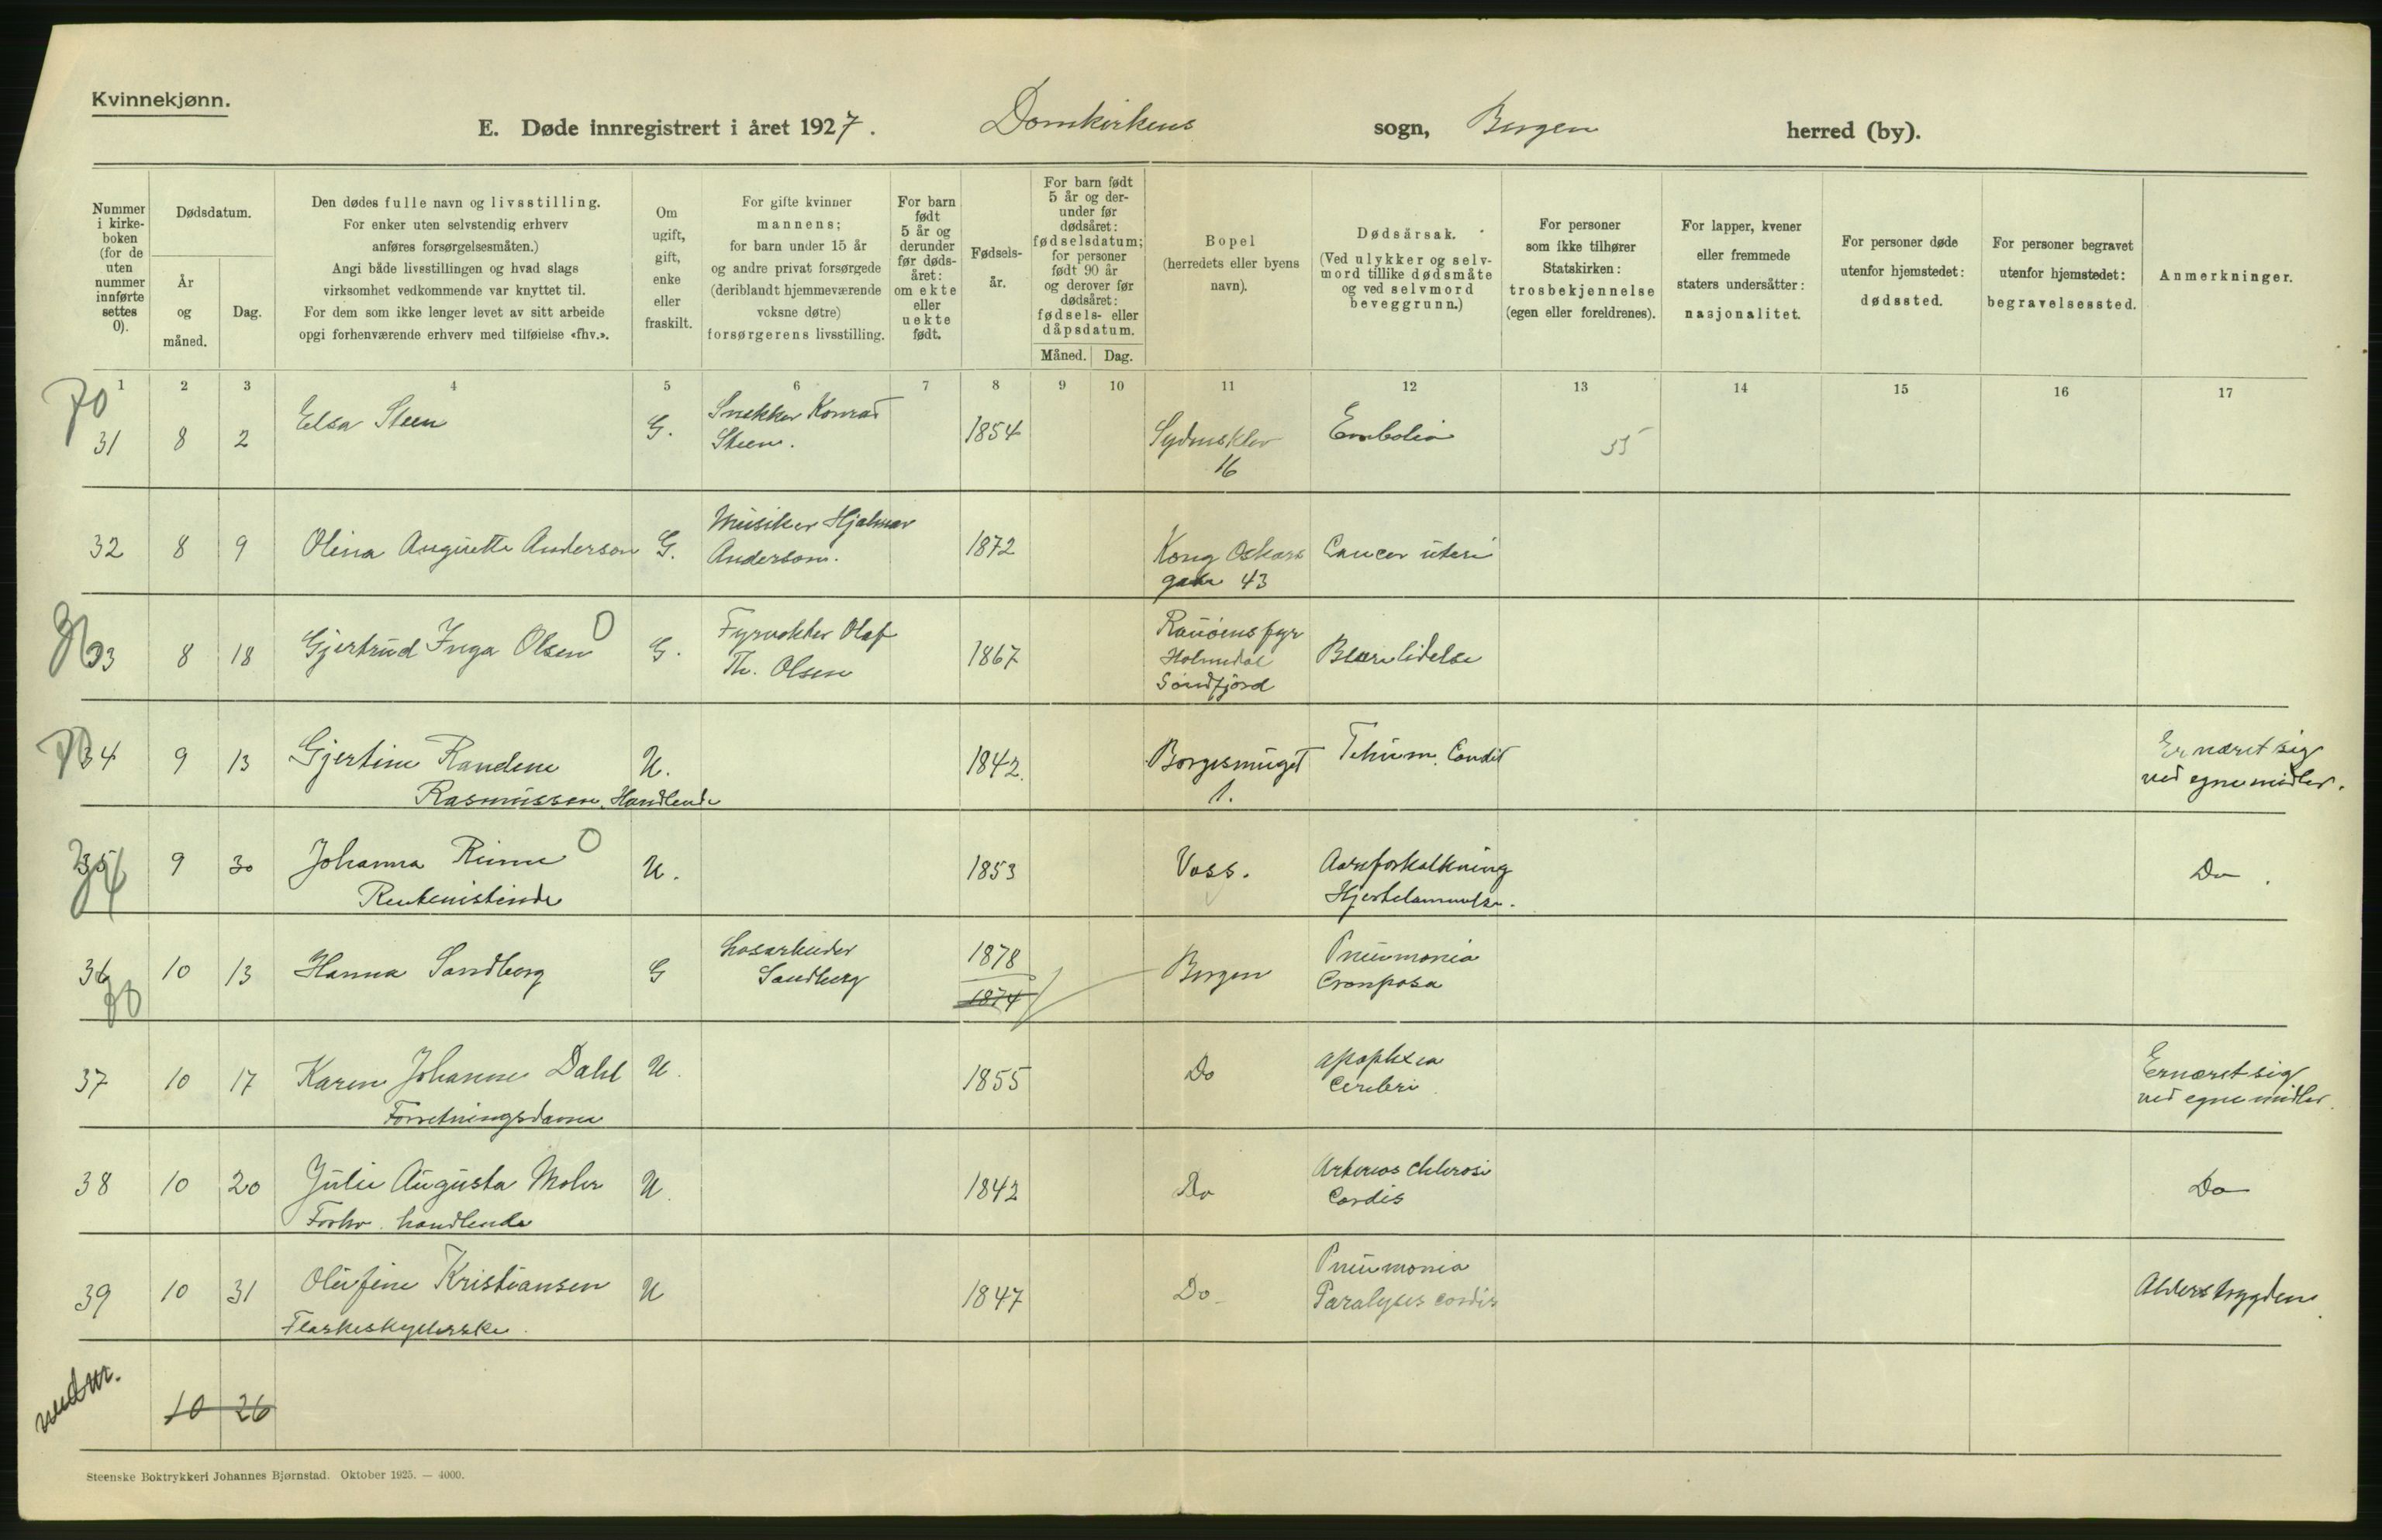 Kvinnekjønn.
E. Døde innregistrert i året 1927. Domkirkens sogn, Bergen herred (by).
Nummer i kirke- boken (for de uten nummer innførte settes 0).
Dødsdatum.
År og måned.
Dag.
Den dødes fulle navn og livsstilling.
For enker uten selvstendig erhverv
anføres forsørgelsesmåten.)
Angi både livsstillingen og hvad slags
virksomhet vedkommende var knyttet til.
For dem som ikke lenger levet av sitt arbeide
opgi forhenværende erhverv med tilføielse «fhv.».
Om ugift, gift, enke eller fraskilt.
For gifte kvinner
mannens;
for barn under 15 år
og andre privat forsørgede
(deriblandt hjemmeværende
voksne døtre)
forsørgerens livsstilling.
For barn født 5 år og derunder før døds- året: om ekte eller uekte født.
Fødsels- år.
For barn født 5 år og der- under før dødsåret: fødselsdatum; for personer født 90 år og derover før dødsåret: fødsels- eller dåpsdatum.
Måned. Dag.
Bopel
(herredets eller byens
navn).
Dødsårsak.
(Ved ulykker og selv-
mord tillike dødsmåte
og ved selvmord
beveggrunn.)
For personer
som ikke tilhører
Statskirken:
trosbekjennelse
(egen eller foreldrenes).
For lapper, kvener
eller fremmede
staters undersåtter:
nasjonalitet.
For personer døde
utenfor hjemstedet:
dødssted.
For personer begravet
utenfor hjemstedet:
begravelsessted.
Anmerkninger.
1 2 3 4 5 6 7 8 9 10 11 12 13 14 15 16 17
31 8 2 Elsa Steen G. Snekker Konrad
Steen. 1854
16 Emboli
32 8 9 Olina Augusta Anderson G. Musiker Hjalmar
Anderson. 1872 Kong Oskars
gate 43 Cancer uteri
33 8 18 Gjertrud Inga Olsen G. Fyrvokter Olaf
Th. Olsen 1867 fyr
Holmedal
Søndfjord
34 9 13 Gjertine Randine
Rasmussen, Handlende U. 1842. Borgesmuget
1. Ernæret sig
ved egne midler.
35 9 30 Johanna
Rentenistinde U. 1853 Voss. Aareforkalkning
Hjertelammelse. Do.
36 10 13 Hanna Sandberg G Løsarbeider
Sandberg 1878
1874 Bergen Pneumonia
Crouposa
37 10 17 Karen Johanne Dahl
Forretningsdame U. 1855 Do apoplexia
Cerebri Ernæret sig
ved egne midler.
38 10 20 Julie Augusta Mohr
Forhv. handlende U. 1842 Do
Cordis Do
39 10 31 Olufine Kristiansen
Flaskeskyllerske. U 1847 Do Pneumonia
Paralyses cordis Alderstrygden.
10 26
Steenske Boktrykkeri Johannes Bjørnstad. Oktober 1925. — 4000.